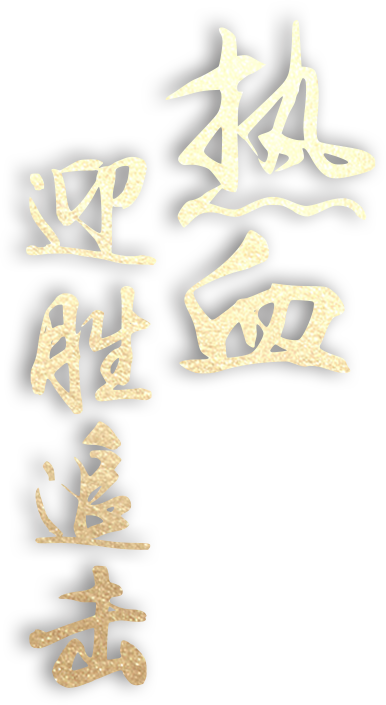 热血
迎胜追击